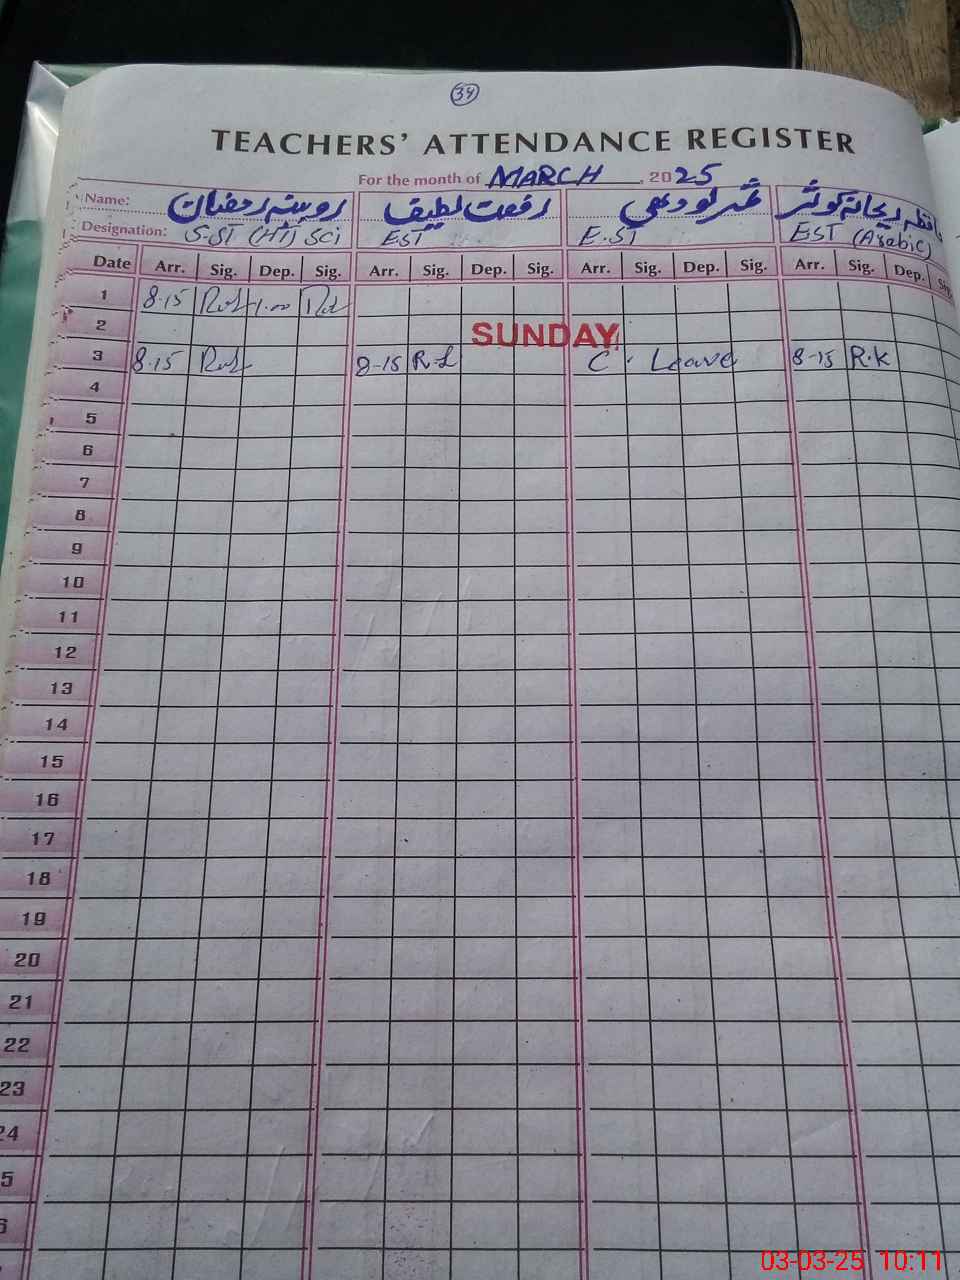 34
TEACHERS' ATTENDANCE REGISTER
For the month of MARCH, 2025
Name: روبینہ رمضان رفعت لطیف لودھی حافظہ ریحانہ کوثر
Designation: S.ST (HT) Sci EST E.ST EST (Arabic)
Date Arr. Sig. Dep. Sig. Arr. Sig. Dep. Sig. Arr. Sig. Dep. Sig. Arr. Sig. Dep. Sig.
1 8-15 1.00
2 SUNDAY
3 8-15 8-15 R.L C. Leave 8-15 R.K
4
5
6
7
8
9
10
11
12
13
14
15
16
17
18
19
20
21
22
23
24
5
6
03-03-25 10:11